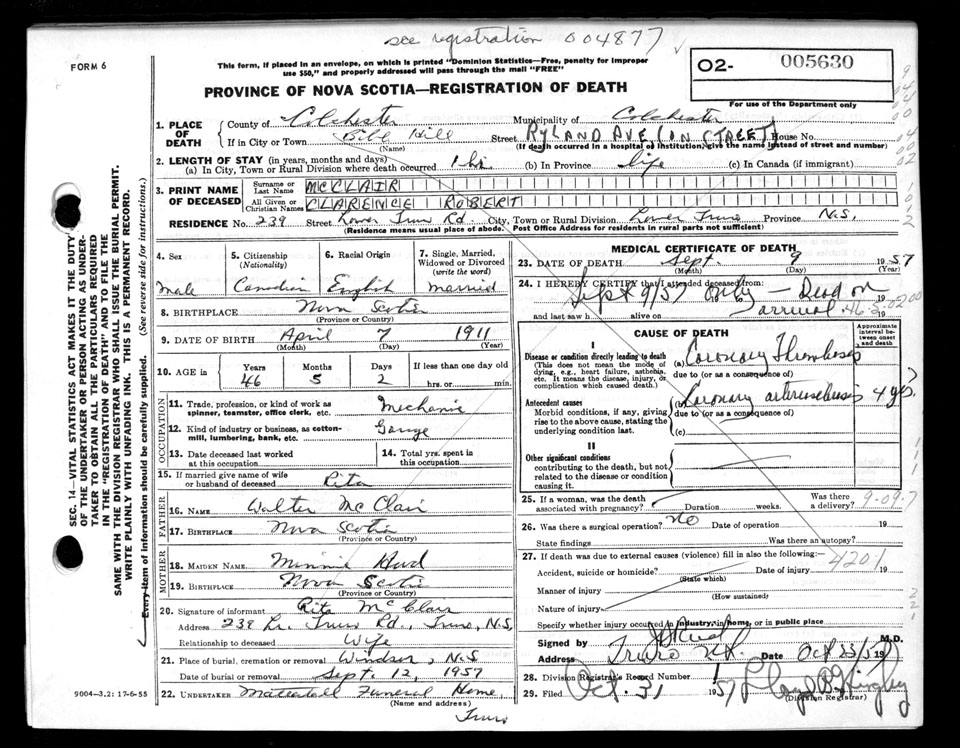 see registration 004877
FORM 6
This form, if placed in an envelope, on which is printed "Dominion Statistics—Free, penalty for improper
use $50," and properly addressed will pass through the mail "FREE"
O2- 005630
For use of the Department only
PROVINCE OF NOVA SCOTIA—REGISTRATION OF DEATH
1. PLACE OF DEATH
County of Colchester Municipality of Colchester
If in City or Town Bible Hill Street RYLAND AVE (IN STREET) House No.
(Name) (If death occurred in a hospital or institution, give the name instead of street and number)
2. LENGTH OF STAY (in years, months and days)
(a) In City, Town or Rural Division where death occurred 1 hr (b) In Province life (c) In Canada (if immigrant)
3. PRINT NAME OF DECEASED
Surname or Last Name MCCLAIR
All Given or Christian Names CLARENCE ROBERT
RESIDENCE No. 239 Street Lower Truro Rd. City, Town or Rural Division Lower Truro Province N.S.
(Residence means usual place of abode. Post Office Address for residents in rural parts not sufficient)
4. Sex 5. Citizenship (Nationality) 6. Racial Origin 7. Single, Married, Widowed or Divorced (write the word)
Male Canadian English Married
8. BIRTHPLACE Nova Scotia
(Province or Country)
9. DATE OF BIRTH April 7 1911
(Month) (Day) (Year)
10. AGE in Years Months Days If less than one day old
46 5 2 hrs. or min.
OCCUPATION
11. Trade, profession, or kind of work as
spinner, teamster, office clerk, etc. Mechanic
12. Kind of industry or business, as cotton-
mill, lumbering, bank, etc. Garage
13. Date deceased last worked
at this occupation
14. Total yrs. spent in
this occupation
15. If married give name of wife
or husband of deceased Rita
FATHER
16. NAME Walter McClair
17. BIRTHPLACE Nova Scotia
(Province or Country)
MOTHER
18. MAIDEN NAME Minnie
19. BIRTHPLACE Nova Scotia
(Province or Country)
20. Signature of informant Rita McClair
Address 239 Lr. Truro Rd., Truro, N.S.
Relationship to deceased Wife
21. Place of burial, cremation or removal Windsor, N.S
Date of burial or removal Sept. 12, 1957
22. UNDERTAKER Mattatall Funeral Home,
(Name and address)
Truro
MEDICAL CERTIFICATE OF DEATH
23. DATE OF DEATH Sept. 9 1957
(Month) (Day) (Year)
24. I HEREBY CERTIFY that I attended deceased from:
Sept 9/57 Only — Dead on 19
and last saw h alive on arrival 19
46-5-02.00
CAUSE OF DEATH
Approximate interval between onset and death
I
Disease or condition directly leading to death
(This does not mean the mode of
dying, e.g., heart failure, asthenia,
etc. It means the disease, injury, or
complication which caused death.)
(a) Coronary Thrombosis
due to (or as a consequence of)
Antecedent causes
Morbid conditions, if any, giving
rise to the above cause, stating the
underlying condition last.
(b) Coronary arteriosclerosis 4 yrs
due to (or as a consequence of)
(c)
II
Other significant conditions
contributing to the death, but not
related to the disease or condition
causing it.
25. If a woman, was the death
associated with pregnancy? Duration weeks. Was there a delivery?
9-09-7
26. Was there a surgical operation? No Date of operation 19
State findings Was there an autopsy?
27. If death was due to external causes (violence) fill in also the following:—
4201
Accident, suicide or homicide? Date of injury 19
(State which)
Manner of injury
(How sustained)
Nature of injury
Specify whether injury occurred in industry, in home, or in public place
Signed by M.D.
Address Truro N.S. Date Oct 23/57 19
28. Division Registrar's Record Number 1
29. Filed Oct. 31 1957
(Division Registrar)
SEC. 14—VITAL STATISTICS ACT MAKES IT THE DUTY
OF THE UNDERTAKER OR PERSON ACTING AS UNDER-
TAKER TO OBTAIN ALL THE PARTICULARS REQUIRED
IN THE "REGISTRATION OF DEATH" AND TO FILE THE
SAME WITH THE DIVISION REGISTRAR WHO SHALL ISSUE THE BURIAL PERMIT.
WRITE PLAINLY WITH UNFADING INK. THIS IS A PERMANENT RECORD.
Every item of information should be carefully supplied. (See reverse side for instructions.)
9004-3.2: 17-6-55